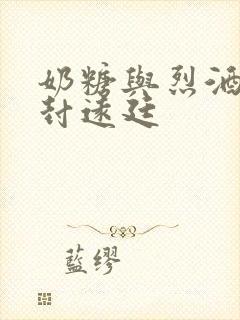 奶糖與烈酒
封遠廷
藍繆